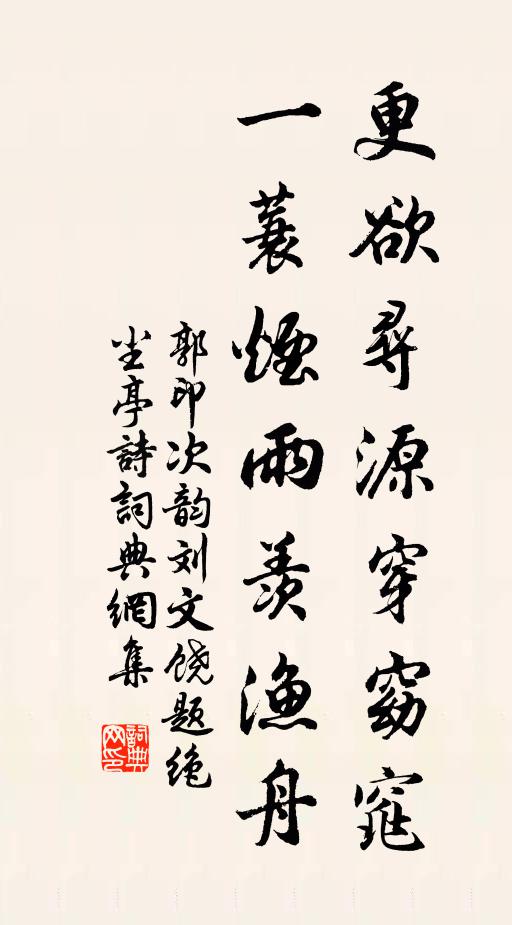 更欲尋源穿窈窕
一蓑煙雨羨漁舟
郭印次韵刘文饶题绝
尘亭詩詞典網集
詞典网印